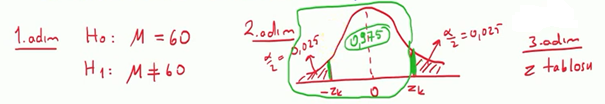 1. adım
H₀: μ = 60
H₁: μ ≠ 60
2. adım
α/2 = 0,025
0,975
α/2 = 0,025
-zk
0
zk
3. adım
z tablosu